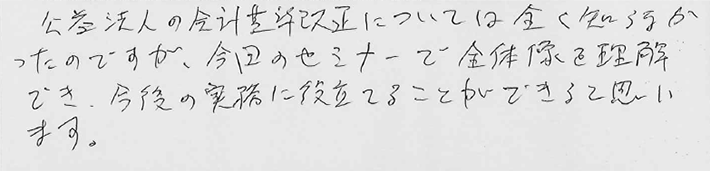 公益法人の会計基準改正については全く知らなか
ったのですが、今回のセミナーで全体像を理解
でき、今後の実務に役立てることができると思い
ます。